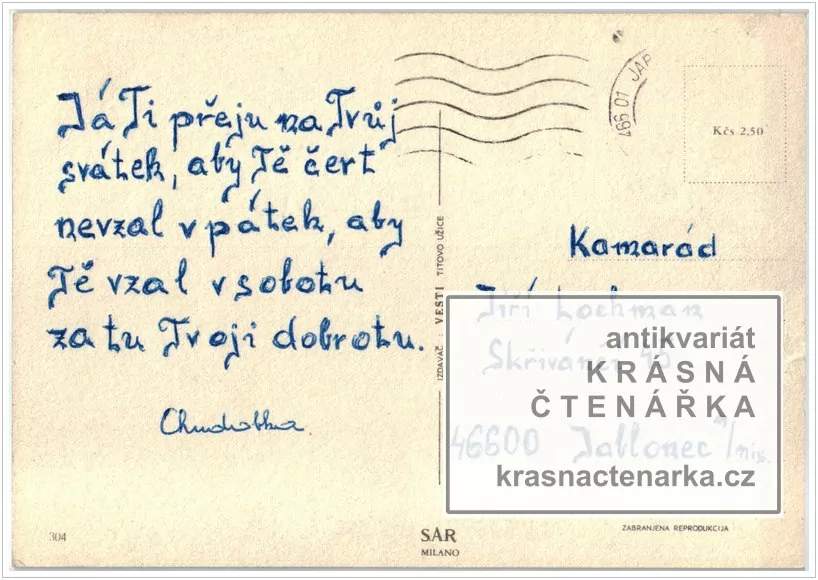 Já Ti přeju na Tvůj
svátek, aby Tě čert
nevzal v pátek, aby
Tě vzal v sobotu
za tu Tvoji dobrotu.
466 01 JAB
Kčs 2,50
IZDAVAČ: VESTI TITOVO UŽICE
Kamarád
Jiří Lochman
Skřivánčí 45
46600 Jablonec n/nis.
antikvariát
KRÁSNÁ
ČTENÁŘKA
krasnactenarka.cz
304
SAR
MILANO
ZABRANJENA REPRODUKCIJA